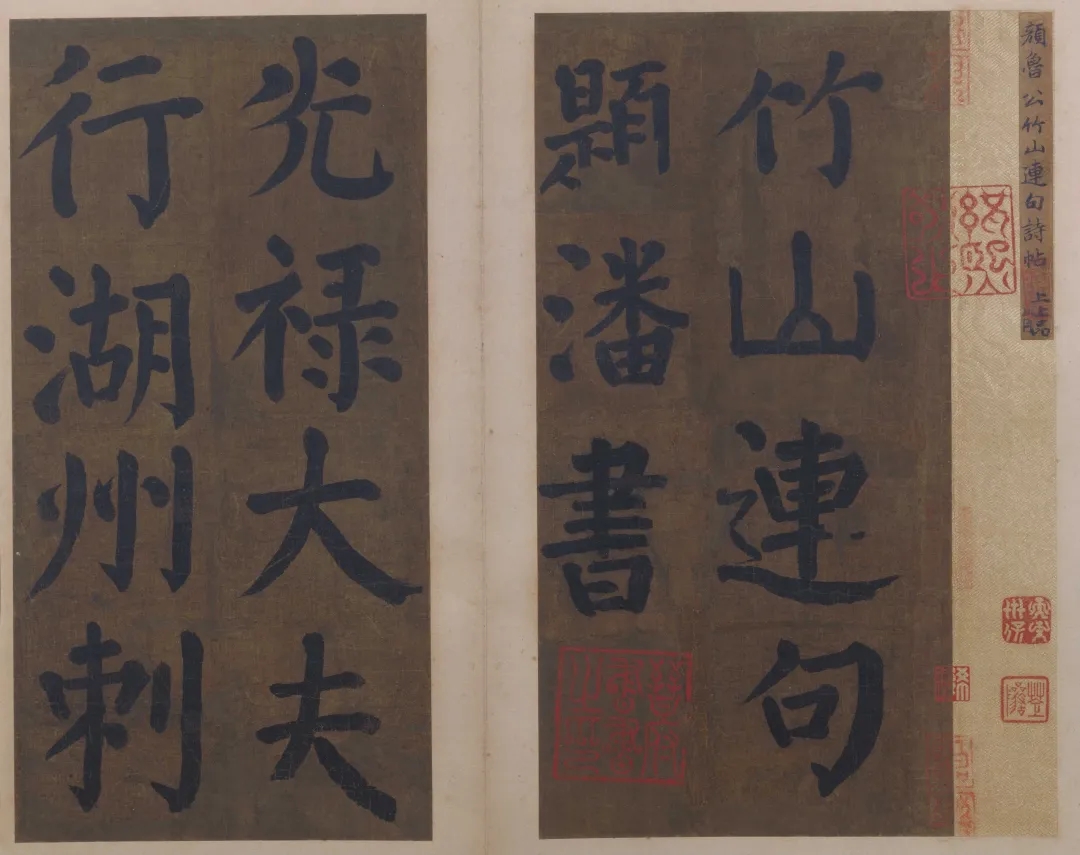 顏魯公竹山連句詩帖 上上品
竹山連句
題潘書
光禄大夫
行湖州刺